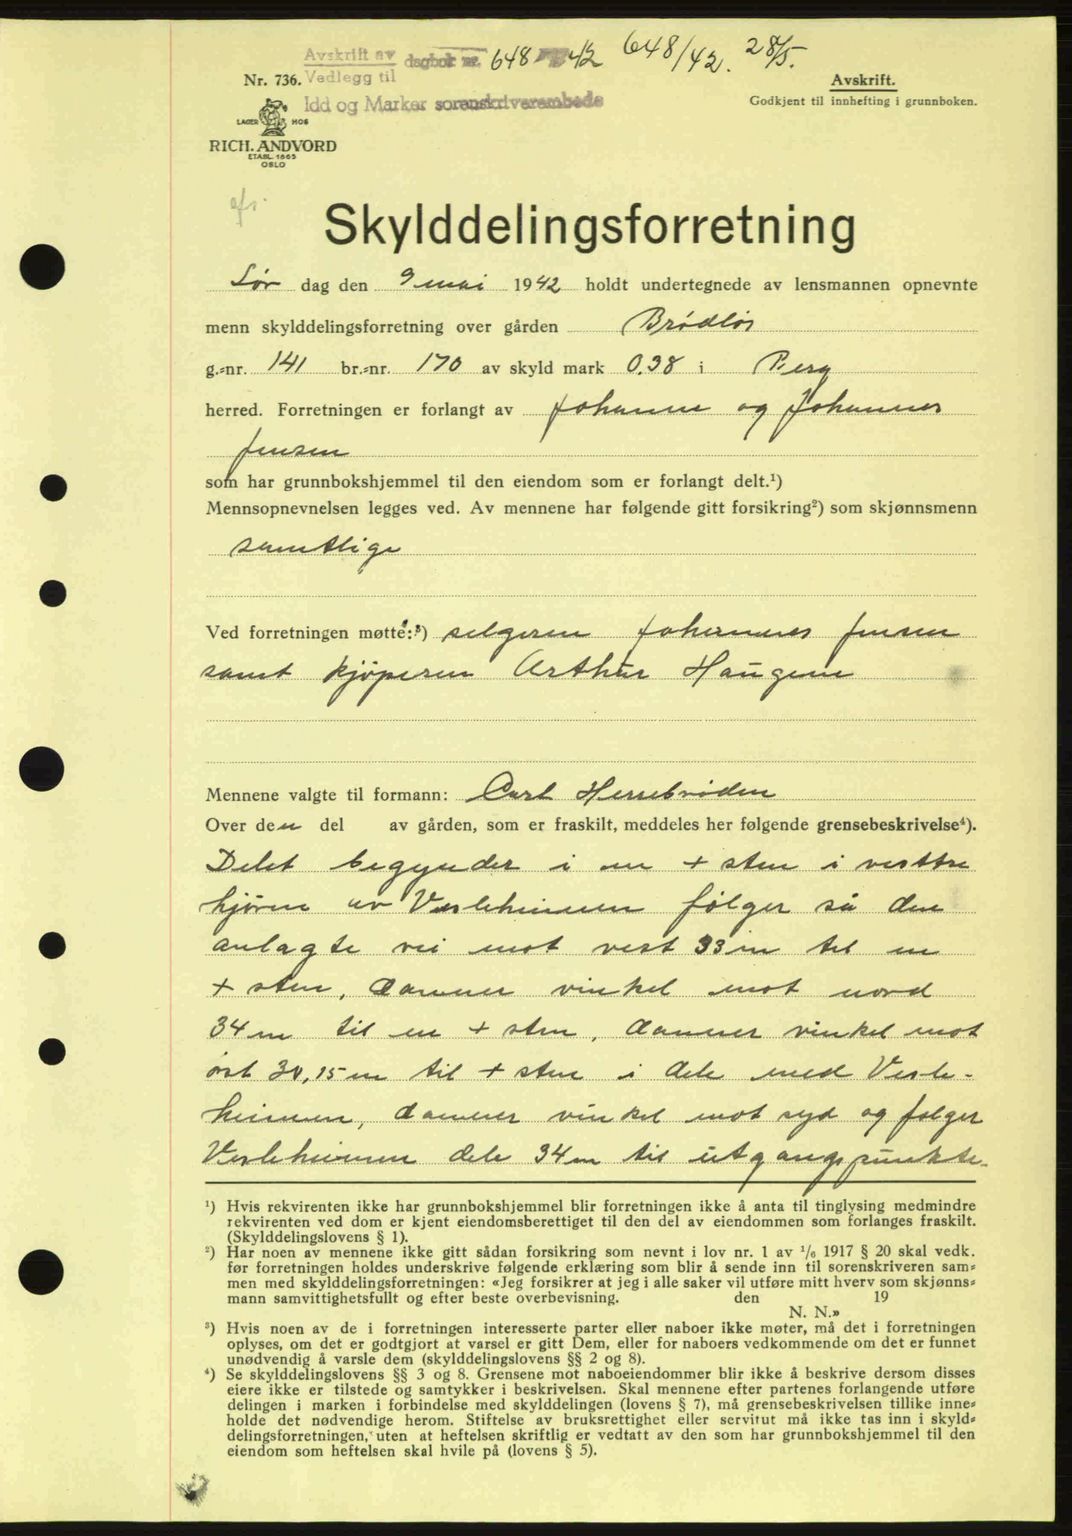 Avskrift av dagbok nr. 648 42 648/42. 28/5.
Nr. 736. Vedlegg til Avskrift.
Idd og Marker sorenskriverembede Godkjent til innhefting i grunnboken.
LAGER HOS
RICH. ANDVORD
ETABL. 1865
OSLO
Skylddelingsforretning
Lør dag den 9 mai 1942 holdt undertegnede av lensmannen opnevnte
menn skylddelingsforretning over gården Brødløs
g.-nr. 141 br.-nr. 170 av skyld mark 0,38 i Berg
herred. Forretningen er forlangt av Johanne og Johannes
Jensen
som har grunnbokshjemmel til den eiendom som er forlangt delt.¹)
Mennsopnevnelsen legges ved. Av mennene har følgende gitt forsikring²) som skjønnsmenn
samtlige
Ved forretningen møtte:³) selgeren Johannes Jensen
samt kjøperen Arthur Haugene
Mennene valgte til formann: Carl Herrebrøden
Over den del av gården, som er fraskilt, meddeles her følgende grensebeskrivelse⁴).
Delet begynder i en + sten i vestre
hjørne av Vesleheimen følger så den
anlagte vei mot vest 33 m til en
+ sten, danner vinkel mot nord
34 m til en + sten, danner vinkel mot
øst 30,15 m til + sten i dele med Vesle-
heimen, danner vinkel mot syd og følger
Vesleheimen dele 34 m til utgangspunkte.
¹) Hvis rekvirenten ikke har grunnbokshjemmel blir forretningen ikke å anta til tinglysing medmindre
rekvirenten ved dom er kjent eiendomsberettiget til den del av eiendommen som forlanges fraskilt.
(Skylddelingslovens § 1).
²) Har noen av mennene ikke gitt sådan forsikring som nevnt i lov nr. 1 av 1/6 1917 § 20 skal vedk.
før forretningen holdes underskrive følgende erklæring som blir å sende inn til sorenskriveren sam-
men med skylddelingsforretningen: «Jeg forsikrer at jeg i alle saker vil utføre mitt hverv som skjønns-
mann samvittighetsfullt og efter beste overbevisning. den 19
N. N.»
³) Hvis noen av de i forretningen interesserte parter eller naboer ikke møter, må det i forretningen
oplyses, om det er godtgjort at varsel er gitt Dem, eller for naboers vedkommende om det er funnet
unødvendig å varsle dem (skylddelingslovens §§ 2 og 8).
⁴) Se skylddelingslovens §§ 3 og 8. Grensene mot naboeiendommer blir ikke å beskrive dersom disses
eiere ikke er tilstede og samtykker i beskrivelsen. Skal mennene efter partenes forlangende utføre
delingen i marken i forbindelse med skylddelingen (lovens § 7), må grensebeskrivelsen tillike inne-
holde det nødvendige herom. Stiftelse av bruksrettighet eller servitut må ikke tas inn i skyld-
delingsforretningen, uten at heftelsen skriftlig er vedtatt av den som har grunnbokshjemmel til den
eiendom som heftelsen skal hvile på (lovens § 5).